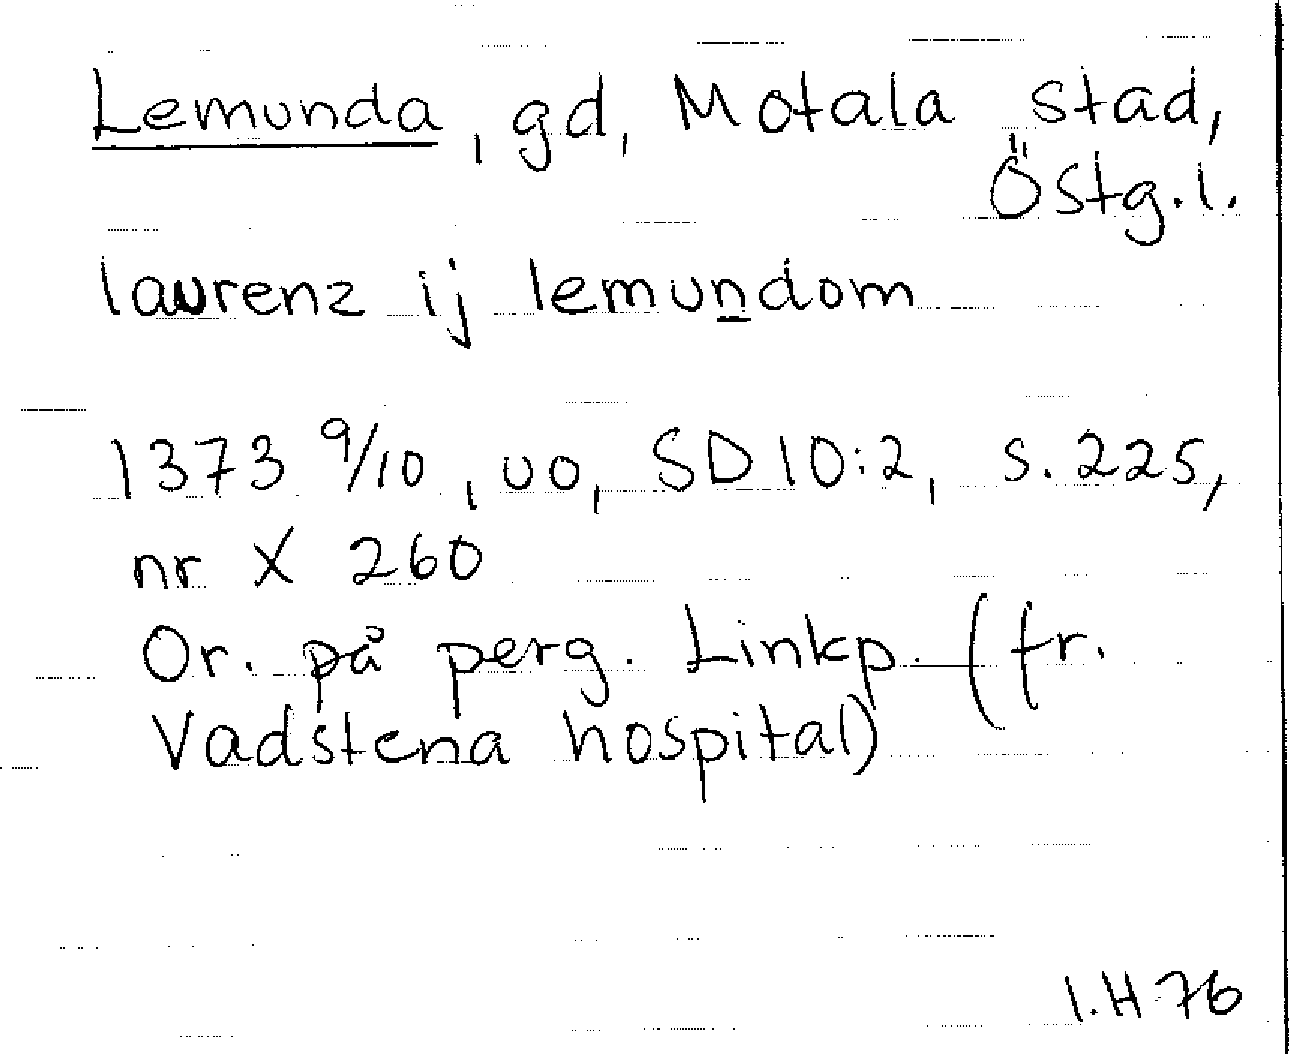 Lemunda, gd, Motala stad,
Östg.l.
laurenz ij lemundom
1373 9/10, uo, SD 10:2, s. 225,
nr X 260
Or. på perg. Linkp. (fr.
Vadstena hospital)
I.H 76